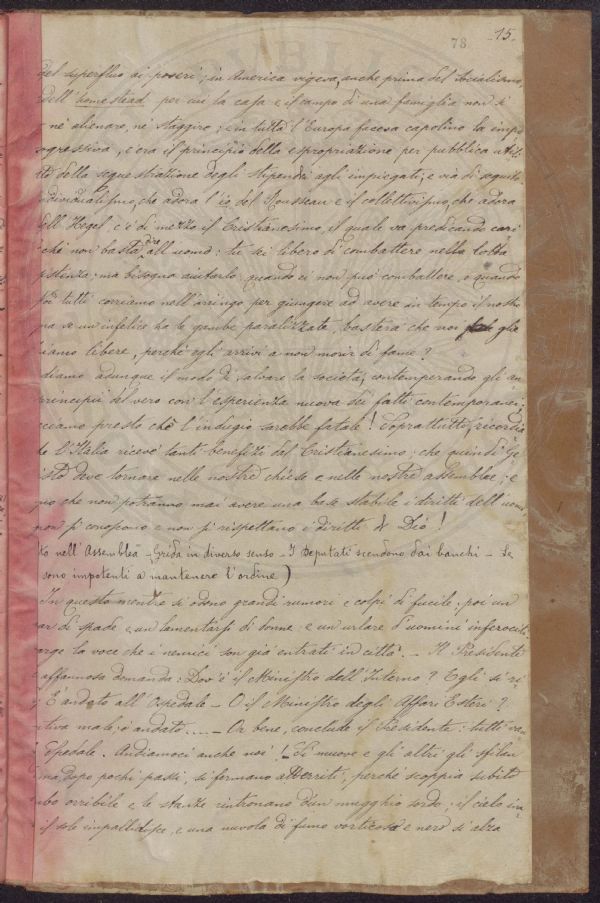 78 15.
del superfluo ai poveri; in America vigeva, anche prima del socialismo,
dell'homestead per cui la casa e il campo di una famiglia non si
nè alienare, nè staggire; e in tutta l'Europa faceva capolino la impo
ogressiva, e'era il principio della espropriazione per pubblica utili
tto della sequestrazione degli stipendi agli impiegati; e via di seguito
individualismo, che adora l'io del Rousseau e il collettivismo, che adora
dell Hegel c'è di mezzo il Cristianesimo, il quale va predicando cari
chè non basta dire all'uomo: tu sei libero di combattere nella lotta
istenza; ma bisogna aiutarlo, quando ei non può combattere, o quando
tutti corriamo nell'arringo per giungere ad avere in tempo il nostro
ma se un infelice ha le gambe paralizzate, basterà che noi gli
iamo libere, perchè egli arrivi a non morir di fame?
diamo adunque il modo di salvare la società, contemperando gli an
principii del vero con l'esperienza nuova dei fatti contemporanei;
cciamo presto chè l'indugio sarebbe fatale! Soprattutto, ricordia
he l'Italia ricevè tanti benefizi dal Cristianesimo; che quindi Ge
isto deve tornare nelle nostre chiese e nelle nostre Assemblee; e
mo che non potranno mai avere una base stabile i diritti dell'uomo
non si conoscono e non si rispettano i diritti di Dio!
to nell'Assemblea - Grida in diverso senso - I Deputati scendono dai banchi - Le
sono impotenti a mantenere l'ordine)
In questo mentre si odono grandi rumori e colpi di fucile; poi un
ar di spade e un lamentarsi di donne e un urlare d'uomini inferociti.
arge la voce che i nemici son già entrati in città. - Il Presidente
affannoso domanda: Dov'è il Ministro dell'Interno? Egli si ri
È andato all'Ospedale - O il Ministro degli Affari Esteri?
ntiva male; è andato..... - Or bene, conclude il Presidente: tutti van
Ospedale. Andiamoci anche noi! - Si muove e gli altri gli sfilan
ma dopo pochi passi, si fermano atterriti, perchè scoppia subito
mbo orribile e le stanze rintronano d'un mugghio sordo; il cielo in-
il sole impallidisce, e una nuvola di fumo vorticosa e nera si alza